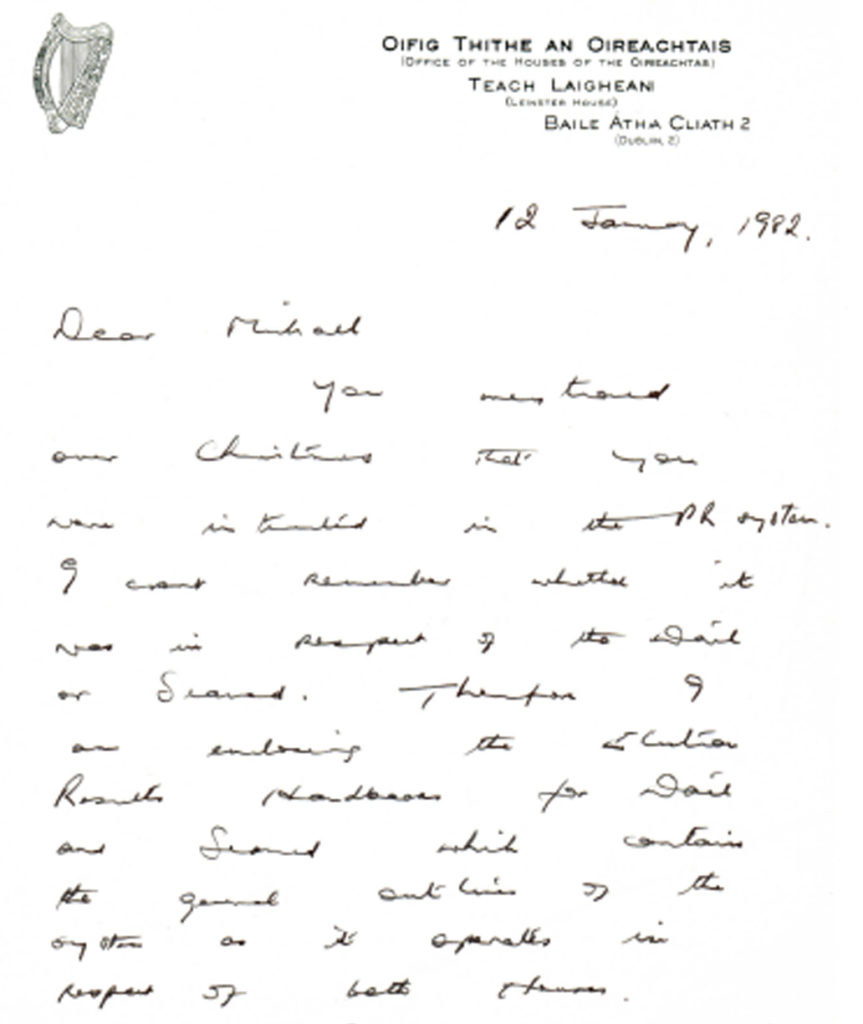 OIFIG THITHE AN OIREACHTAIS
(OFFICE OF THE HOUSES OF THE OIREACHTAS)
TEACH LAIGHEAN
(LEINSTER HOUSE)
BAILE ÁTHA CLIATH 2
(DUBLIN, 2)
12 January, 1982.
Dear Michael
You mentioned
over Christmas that you
were interested in the PR system.
I cant remember whether it
was in respect of the Dáil
or Seanad. Therefore I
am enclosing the Election
Results Handbooks for Dáil
and Seanad which contains
the general outlines of the
system as it operates in
respect of both Houses.